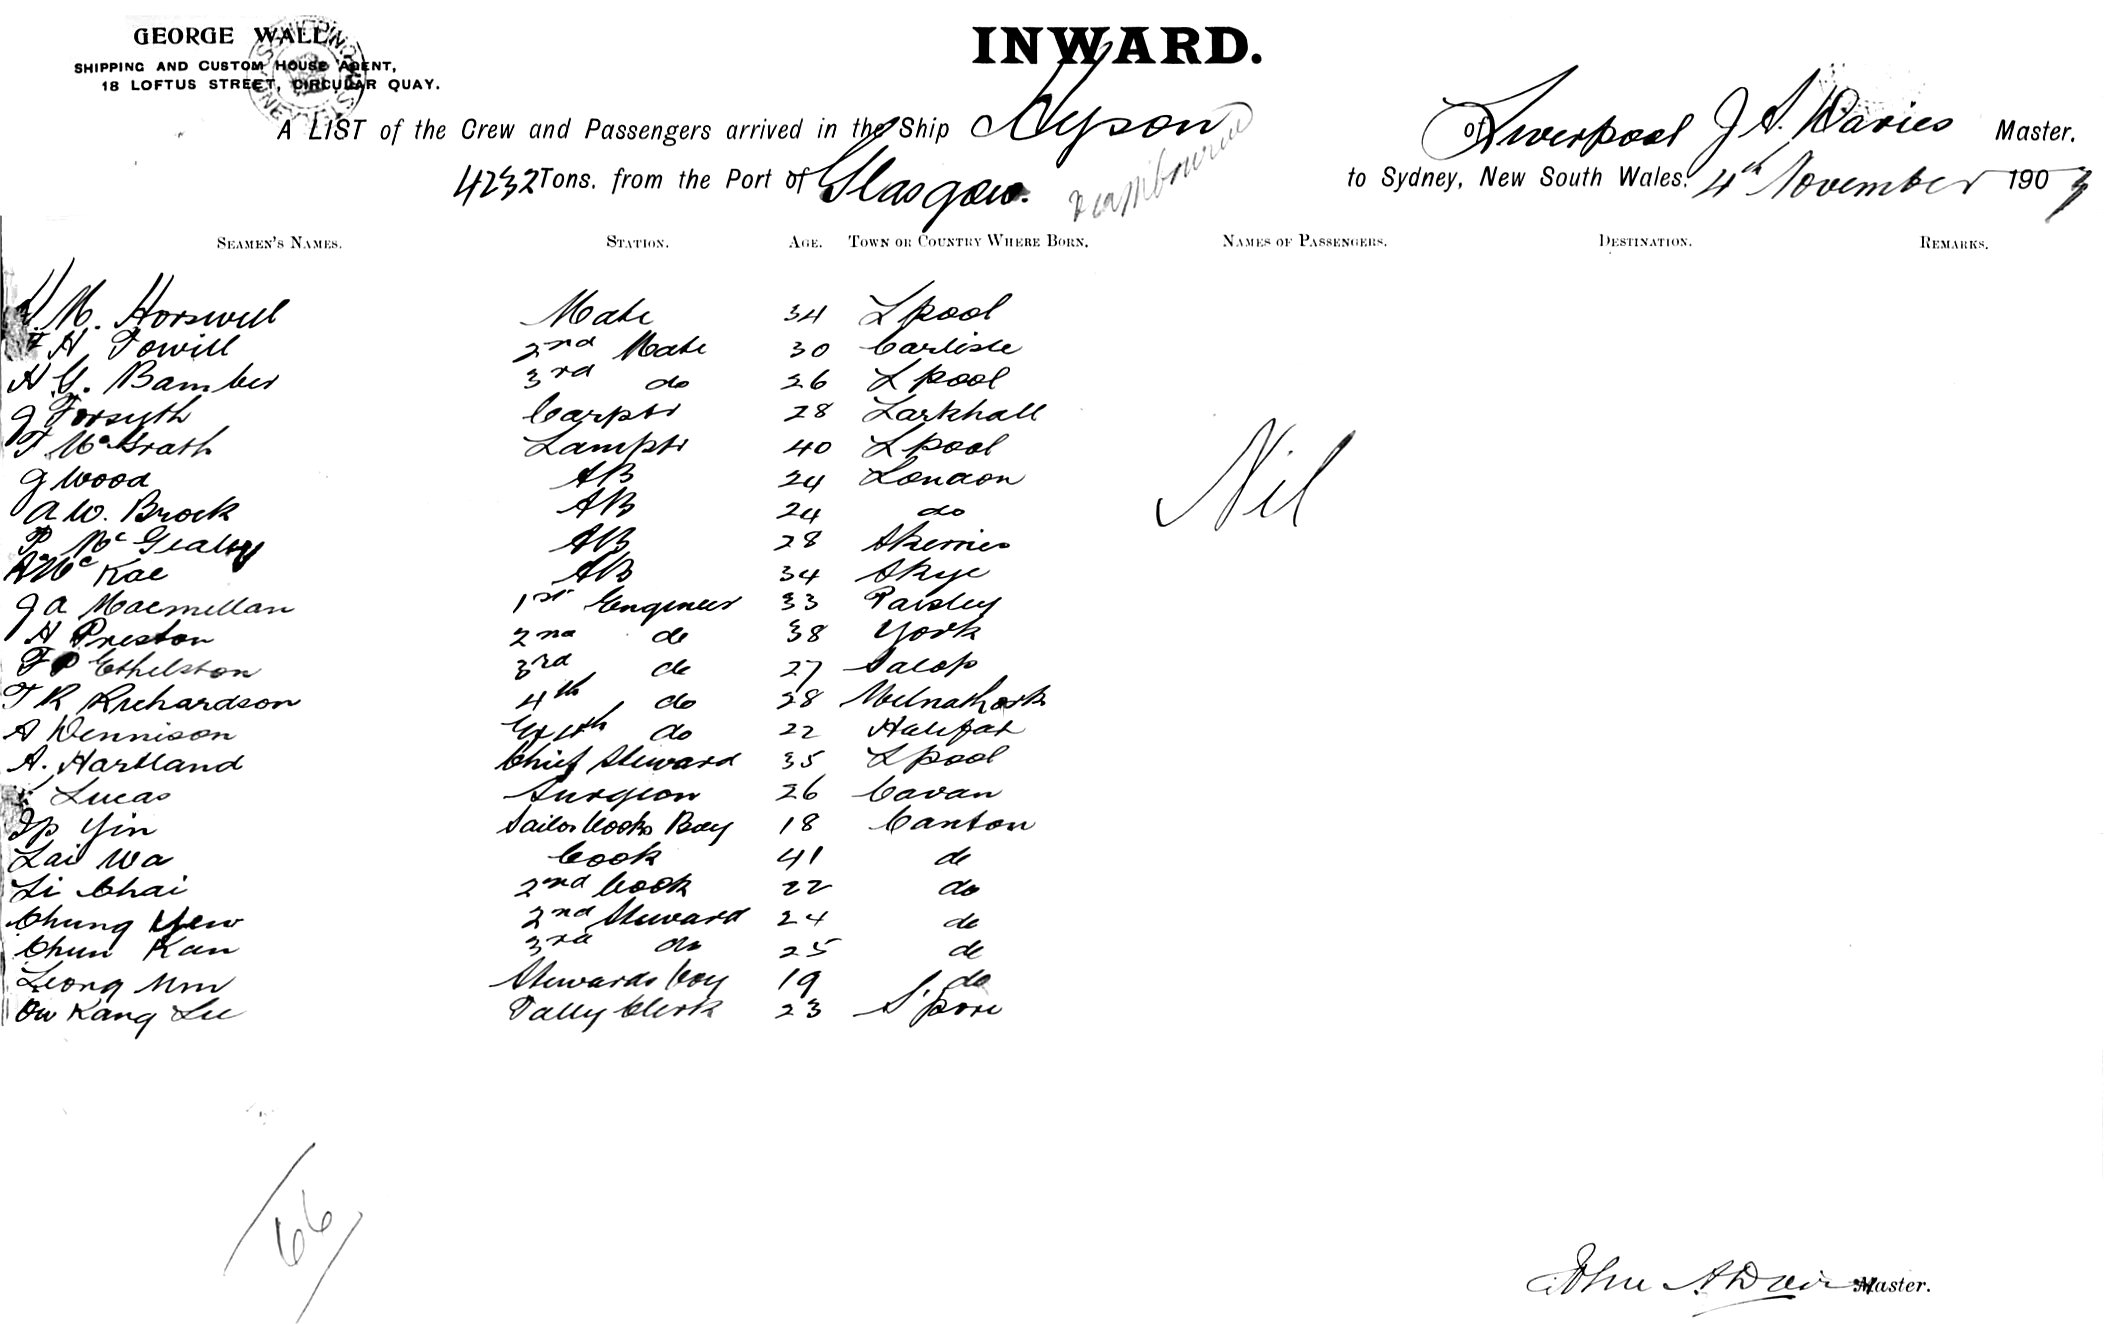 GEORGE WALL,
SHIPPING AND CUSTOM HOUSE AGENT,
18 LOFTUS STREET, CIRCULAR QUAY.
INWARD.
A LIST of the Crew and Passengers arrived in the Ship Hyson of Liverpool J A. Davies Master.
4232 Tons. from the Port of Glasgow. via Melbourne to Sydney, New South Wales. 4th November 1907
SEAMEN'S NAMES. STATION. AGE. TOWN OR COUNTRY WHERE BORN. NAMES OF PASSENGERS. DESTINATION. REMARKS.
M. Horswell Mate 34 Lpool
F H Towill 2nd Mate 30 Carlisle
H G. Bamber 3rd do 26 Lpool
J Forsyth Carptr 28 Larkhall
T McGrath Lamptr 40 Lpool
J Wood AB 24 London
A W. Brock AB 24 do
P McGealey AB 28 Skerries
A McRae AB 34 Skye
J A Macmillan 1st Engineer 33 Paisley
H Preston 2nd do 38 York
F P Ethelston 3rd do 27 Salop
T R Richardson 4th do 28 Milnathork
A Dennison Ex 4th do 22 Halifax
A. Hartland Chief Steward 35 Lpool
Lucas Surgeon 26 Cavan
Ip Yin Sailors Cooks Boy 18 Canton
Lai Wa Cook 41 do
Li Chai 2nd Cook 22 do
Chung Yew 2nd Steward 24 do
Chun Kan 3rd do 25 do
Leong Stewards boy 19 do
Ow Kang Lee Tally Clerk 23 S'pore
Nil
66
John A Davies Master.